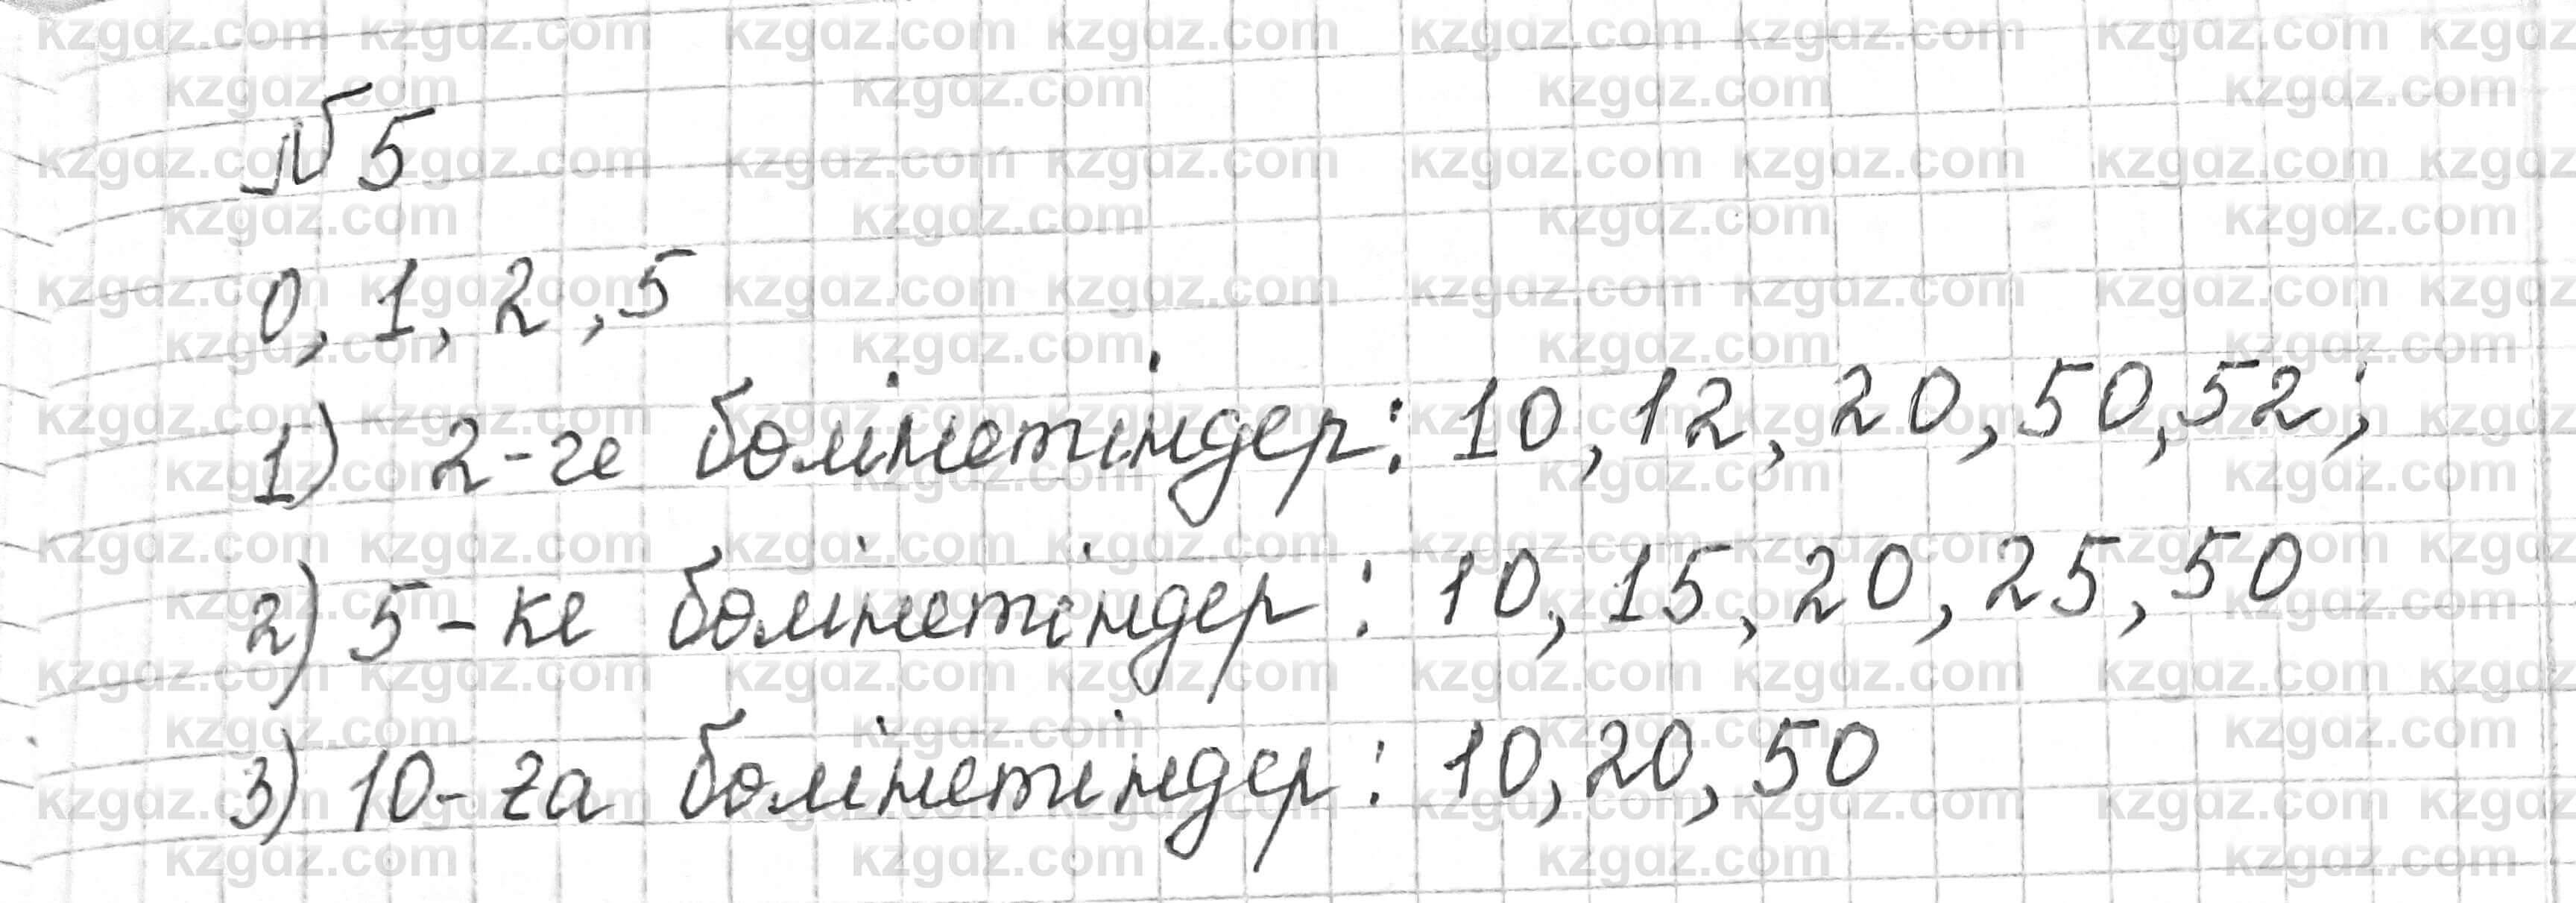 №5
0, 1, 2, 5
1) 2-ге бөлінетіндер: 10, 12, 20, 50, 52;
2) 5-ке бөлінетіндер: 10, 15, 20, 25, 50
3) 10-ға бөлінетіндер: 10, 20, 50
kzgdz.com